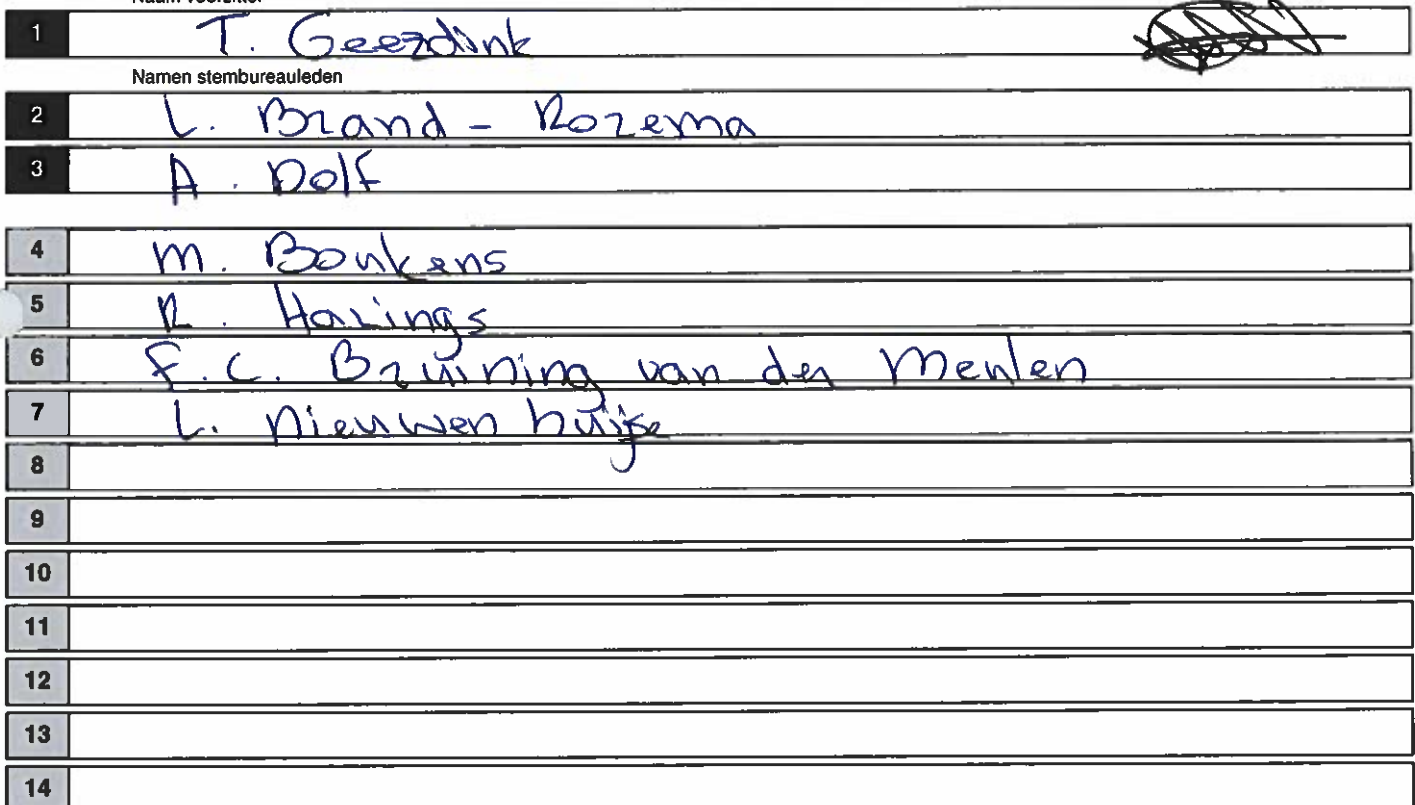 Naam voorzitter
1 T. Geerdink
Namen stembureauleden
2 L. Brand - Rozema
3 A. Dolf
4 M. Bonkens
5 R. Harings
6 F.C. Bruining van der Menlen
7 L. Nieuwen huijse
8
9
10
11
12
13
14